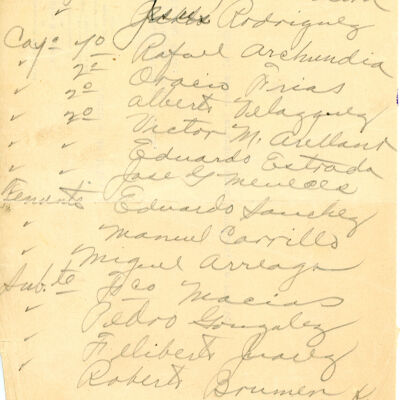 ✓ Jesús Rodriguez
Capº 1º Rafael Archundia
✓ 2º Oracio Frias
✓ 2º Alberto Velazquez
✓ 2º Victor M. Arellano
✓ ✓ Eduardo Estrada
✓ ✓ Jose G Meneses
Eduardo Sanchez
✓ ✓ Manuel Carrillo
✓ Miguel Arreaga
Sub.te Fco Macias
✓ Pedro Gonzalez
✓ Filiberto Juarez
✓ Roberto